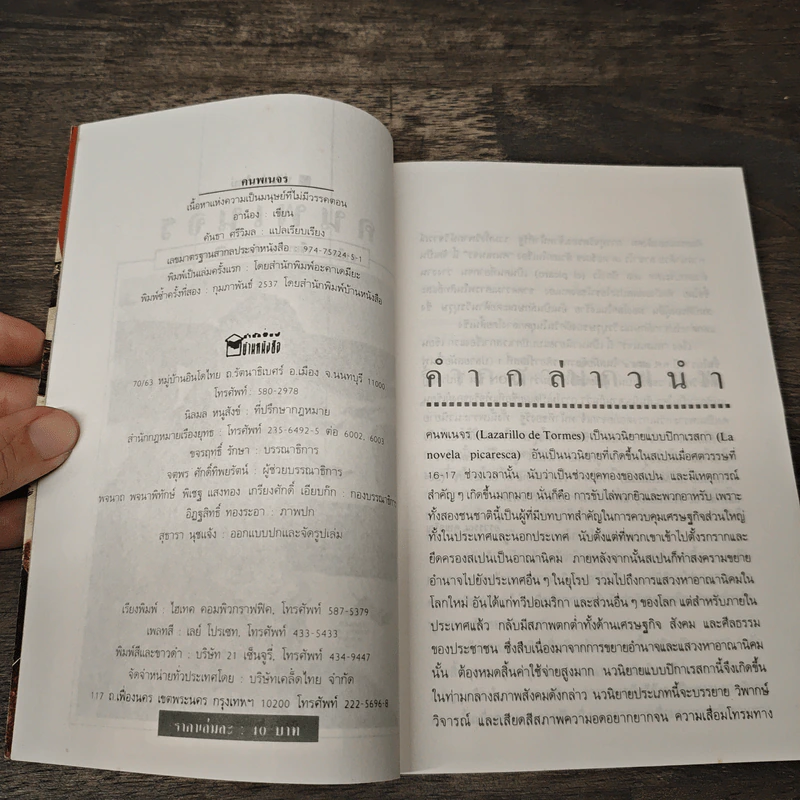 คนพเนจร
เนื้อหาแห่งความเป็นมนุษย์ที่ไม่มีวรรคตอน
อานือง : เขียน
คันธา ศรีวิมล : แปลเรียบเรียง
เลขมาตรฐานสากลประจำหนังสือ : 974-75724-5-1
พิมพ์เป็นเล่มครั้งแรก : โดยสำนักพิมพ์อะคาเดมียะ
พิมพ์ซ้ำครั้งที่สอง : กุมภาพันธ์ 2537 โดยสำนักพิมพ์บ้านหนังสือ
สำนักพิมพ์
บ้านหนังสือ
70/63 หมู่บ้านอินโดไทย ถ.รัตนาธิเบศร์ อ.เมือง จ.นนทบุรี 11000
โทรศัพท์ : 580-2978
นิลมล หนูสังข์ : ที่ปรึกษากฎหมาย
สำนักกฎหมายเรืองยุทธ : โทรศัพท์ 235-6492-5 ต่อ 6002, 6003
ขจรฤทธิ์ รักษา : บรรณาธิการ
จตุพร ศักดิ์ทิพยรัตน์ : ผู้ช่วยบรรณาธิการ
พจนาถ พจนาพิทักษ์ พิเชฐ แสงทอง เกรียงศักดิ์ เอียบก๊ก : กองบรรณาธิการ
อิฏฐสิทธิ์ ทองระอา : ภาพปก
สุธารา นุชแจ้ง : ออกแบบปกและจัดรูปเล่ม
เรียงพิมพ์ : ไฮเทค คอมพิวกราฟฟิค, โทรศัพท์ 587-5379
เพลทสี : เลย์ โปรเซท, โทรศัพท์ 433-5433
พิมพ์สีและขาวดำ : บริษัท 21 เซ็นจูรี่, โทรศัพท์ 434-9447
จัดจำหน่ายทั่วประเทศโดย : บริษัทเคล็ดไทย จำกัด
117 ถ.เฟื่องนคร เขตพระนคร กรุงเทพฯ 10200 โทรศัพท์ 222-5696-8
ราคาเล่มละ : 40 บาท
คำกล่าวนำ
คนพเนจร (Lazarillo de Tormes) เป็นนวนิยายแบบปิกาเรสกา (La
novela picaresca) อันเป็นนวนิยายที่เกิดขึ้นในสเปนเมื่อศตวรรษที่
16-17 ช่วงเวลานั้น นับว่าเป็นช่วงยุคทองของสเปน และมีเหตุการณ์
สำคัญ ๆ เกิดขึ้นมากมาย นั่นก็คือ การขับไล่พวกยิวและพวกอาหรับ เพราะ
ทั้งสองชนชาตินี้เป็นผู้ที่มีบทบาทสำคัญในการควบคุมเศรษฐกิจส่วนใหญ่
ทั้งในประเทศและนอกประเทศ นับตั้งแต่ที่พวกเขาเข้าไปตั้งรกรากและ
ยึดครองสเปนเป็นอาณานิคม ภายหลังจากนั้นสเปนก็ทำสงครามขยาย
อำนาจไปยังประเทศอื่น ๆ ในยุโรป รวมไปถึงการแสวงหาอาณานิคมใน
โลกใหม่ อันได้แก่ทวีปอเมริกา และส่วนอื่น ๆ ของโลก แต่สำหรับภายใน
ประเทศแล้ว กลับมีสภาพตกต่ำทั้งด้านเศรษฐกิจ สังคม และศีลธรรม
ของประชาชน ซึ่งสืบเนื่องมาจากการขยายอำนาจและแสวงหาอาณานิคม
นั้น ต้องหมดสิ้นค่าใช้จ่ายสูงมาก นวนิยายแบบปิกาเรสกานี้จึงเกิดขึ้น
ในท่ามกลางสภาพสังคมดังกล่าว นวนิยายประเภทนี้จะบรรยาย วิพากษ์
วิจารณ์ และเสียดสีสภาพความอดอยากยากจน ความเสื่อมโทรมทาง